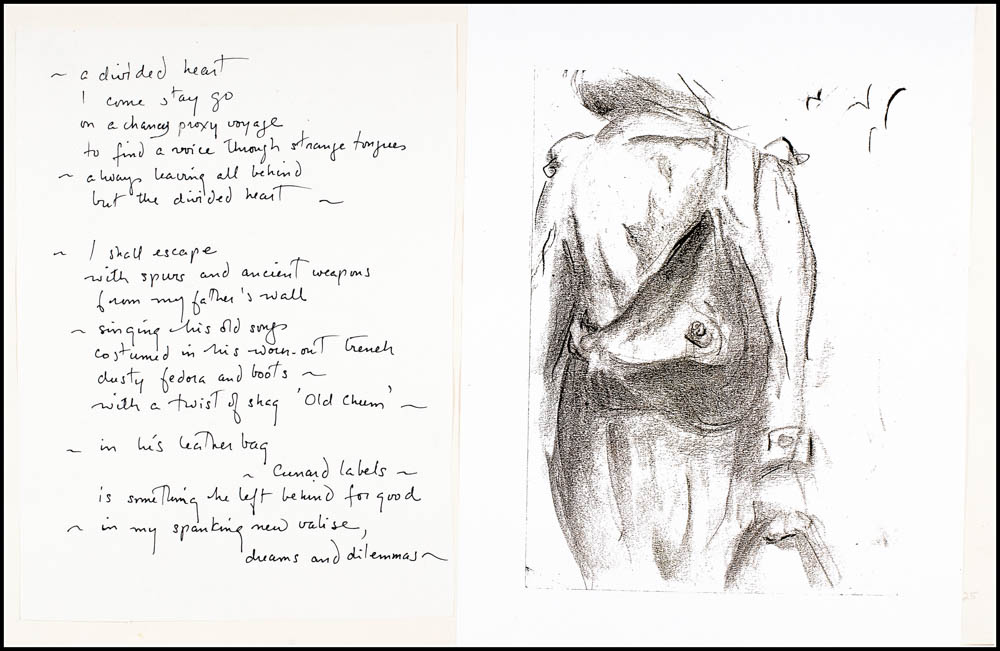 ~ a divided heart
I come stay go
on a chancy proxy voyage
to find a voice through strange tongues
~ always leaving all behind
but the divided heart ~
~ I shall escape
with spurs and ancient weapons
from my father's wall
~ singing his old songs
costumed in his worn-out trench
dusty fedora and boots ~
with a twist of shag 'Old Chum' ~
~ in his leather bag
~ Cunard labels ~
is something he left behind for good
~ in my spanking new valise,
dreams and dilemmas ~
25